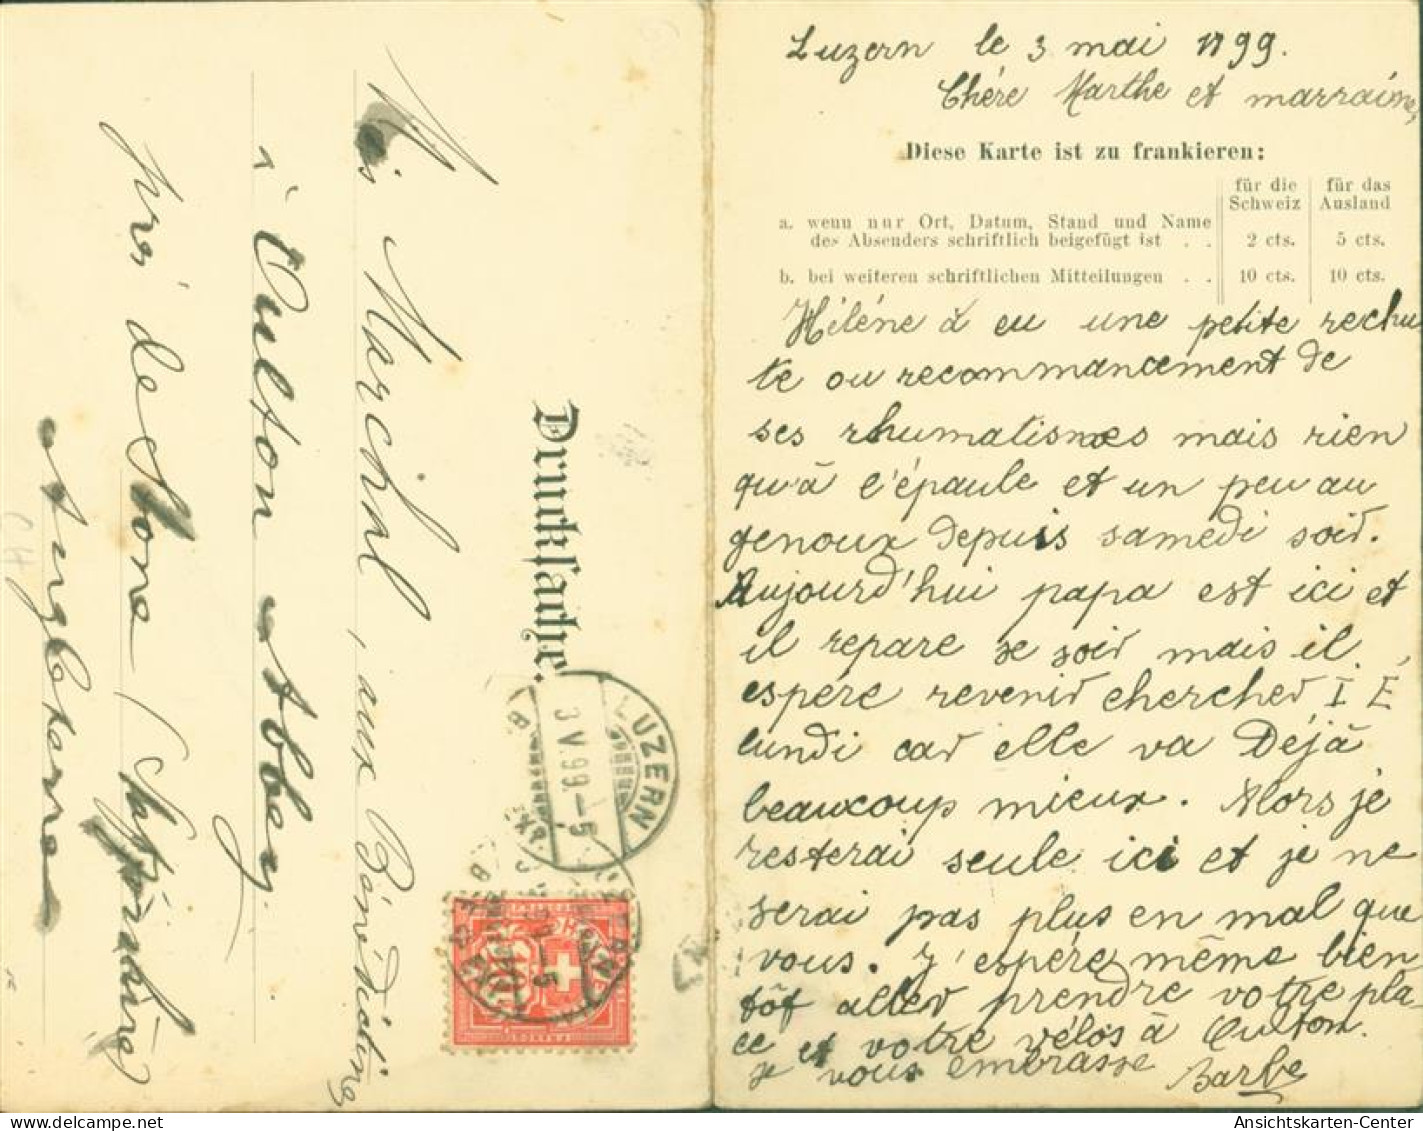 Luzern le 3 mai 1899.
Chére Marthe et marraine,
Diese Karte ist zu frankieren:
für die Schweiz
für das Ausland
a. wenn nur Ort, Datum, Stand und Name
des Absenders schriftlich beigefügt ist . . 2 cts. 5 cts.
b. bei weiteren schriftlichen Mitteilungen . . 10 cts. 10 cts.
Héléne à eu une petite rechu
te ou recommancement de
ses rhumatismes mais rien
qu'à l'épaule et un peu au
genoux depuis samedi soir.
Aujourd'hui papa est ici et
il repare se soir mais il
espére revenir chercher I É
lundi car elle va Déjà
beaucoup mieux. Alors je
resterai seule ici et je ne
serai pas plus en mal que
vous. J'espére même bien
tôt aller prendre votre pla-
ce et votre vélos à Oulton.
Je vous embrasse Barbe
Drucksache.
Miss Maréchal, aux Bénédictines
à Oulton Abbey
près de Stone (Staffordshire)
Angleterre
LUZERN
3.V.99.-5
10
Ansichtskarten-Center